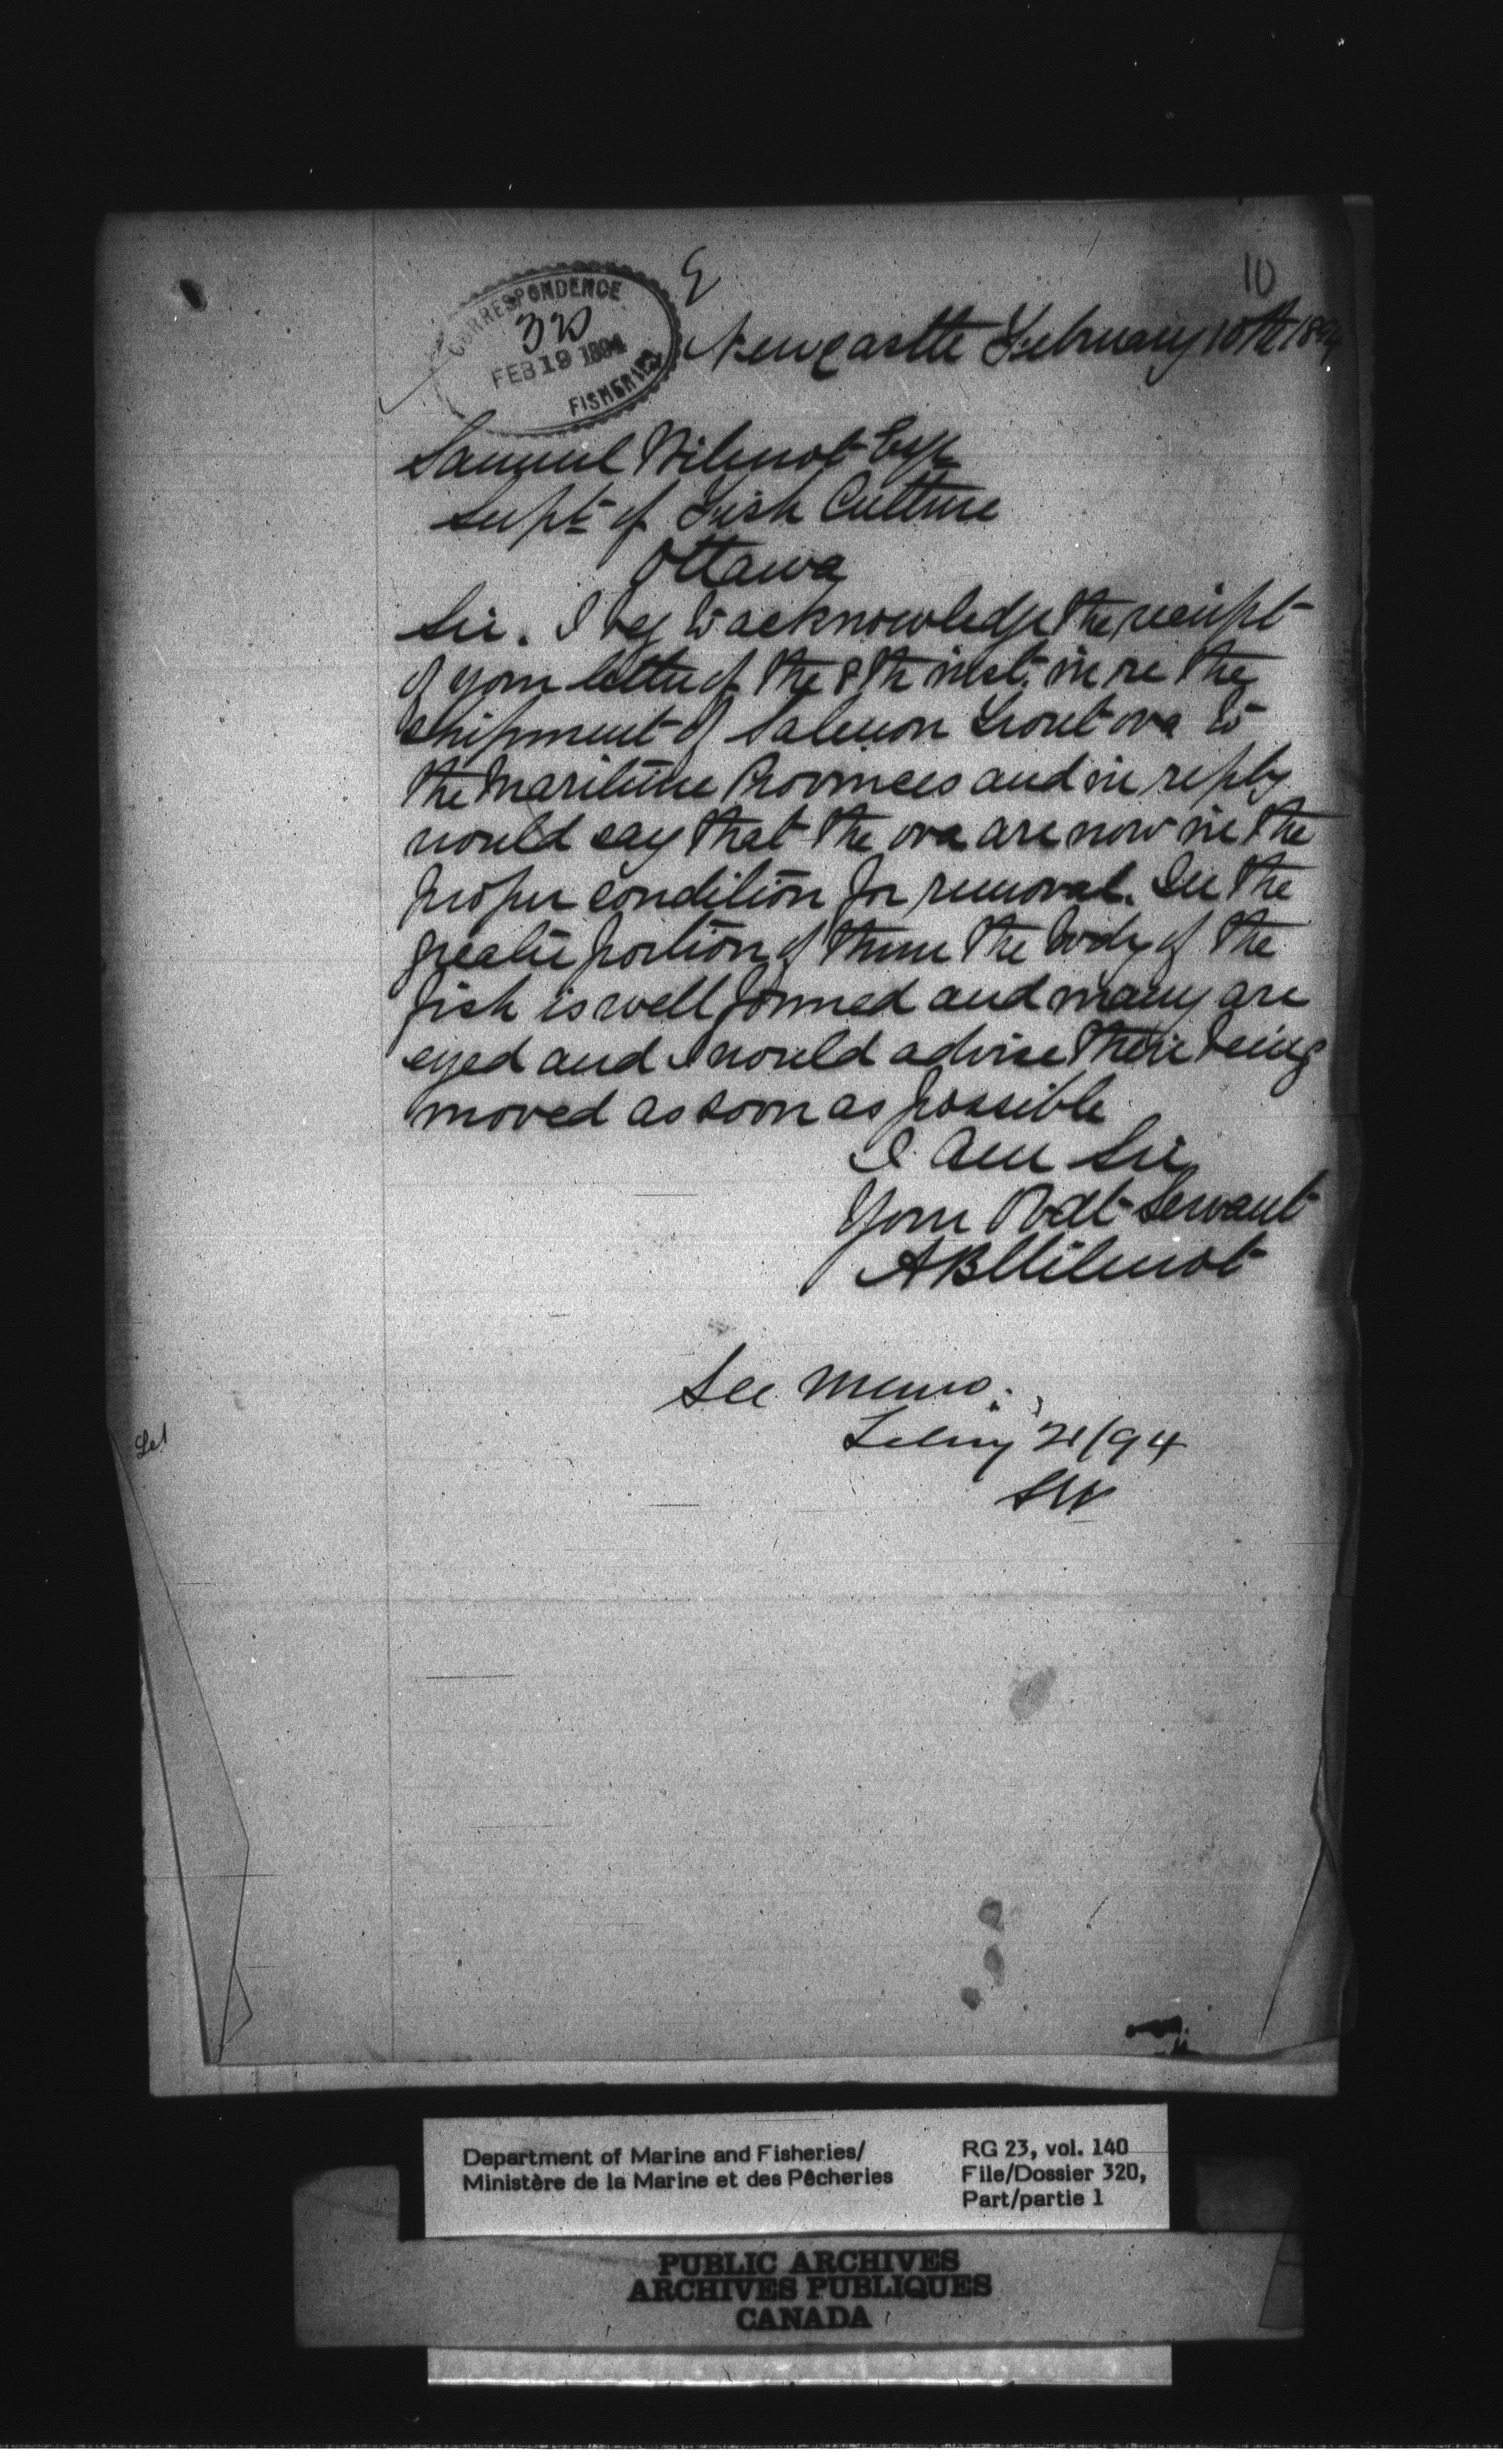 10
CORRESPONDENCE
320
FEB 19 1894
FISHERIES
Newcastle February 10th 1894
Samuel Wilmot Esq
Supt of Fish Culture
Ottawa
Sir. I beg to acknowledge the receipt
of your letter of the 8th inst. in re the
shipment of Salmon Trout ova to
the Maritime Provinces and in reply
would say that the ova are now in the
proper condition for removal. In the
greater portion of them the body of the
fish is well formed and many are
eyed and I would advise their being
moved as soon as possible
I am Sir
Your Obdt Servant
A B Wilmot
See memo.
Febry 21/94
SW
Let
Department of Marine and Fisheries/
Ministère de la Marine et des Pêcheries
RG 23, vol. 140
File/Dossier 320,
Part/partie 1
PUBLIC ARCHIVES
ARCHIVES PUBLIQUES
CANADA